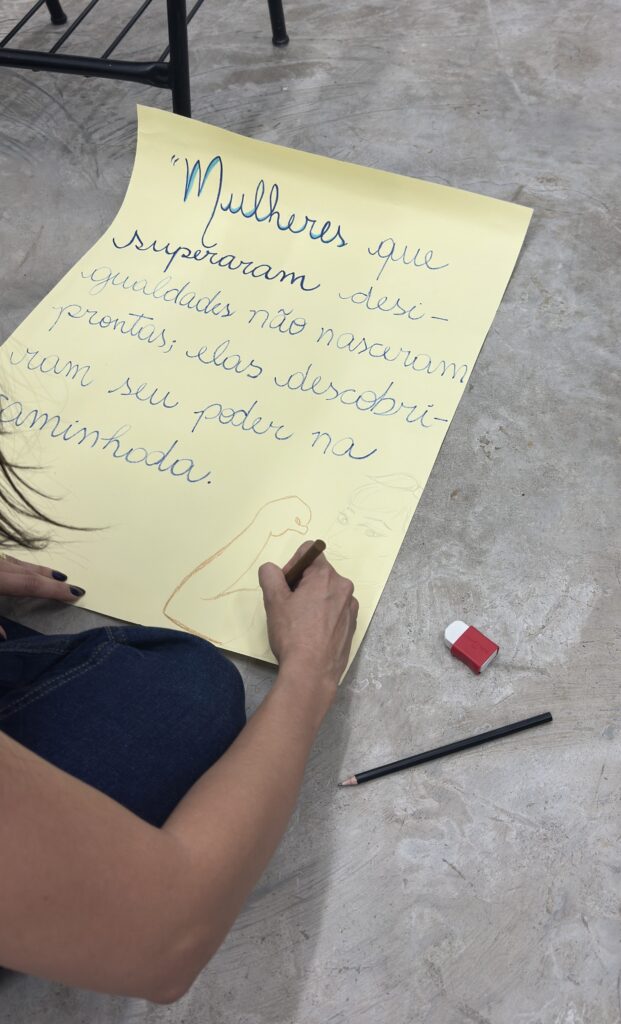 "Mulheres que
superaram desi-
gualdades não nasceram
prontas; elas descobri-
ram seu poder na
caminhada.